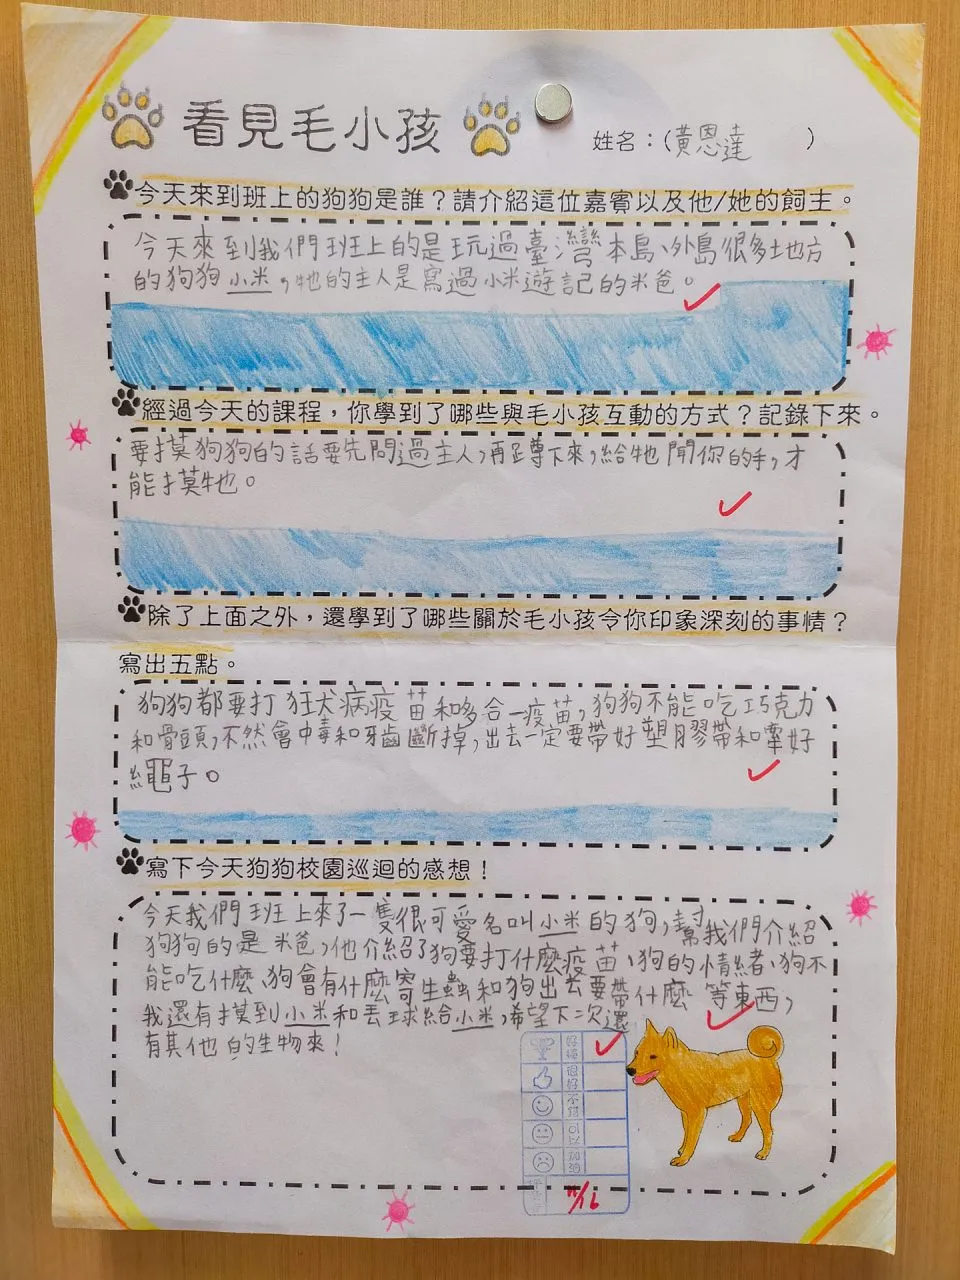 看見毛小孩
姓名：(黃恩達 )
今天來到班上的狗狗是誰？請介紹這位嘉賓以及他/她的飼主。
今天來到我們班上的是玩過臺灣本島、外島很多地方
的狗狗小米，牠的主人是寫過小米遊記的米爸。
經過今天的課程，你學到了哪些與毛小孩互動的方式？記錄下來。
要摸狗狗的話要先問過主人，再蹲下來，給牠聞你的手，才
能摸牠。
除了上面之外，還學到了哪些關於毛小孩令你印象深刻的事情？
寫出五點。
狗狗都要打狂犬病疫苗和多合一疫苗，狗狗不能吃巧克力
和骨頭，不然會中毒和牙齒斷掉，出去一定要帶好塑膠帶和牽好
繩子。
寫下今天狗狗校園巡迴的感想！
今天我們班上來了一隻很可愛名叫小米的狗，幫我們介紹
狗狗的是米爸，他介紹了狗要打什麼疫苗、狗的情緒、狗不
能吃什麼、狗會有什麼寄生蟲和狗出去要帶什麼等東西，
我還有摸到小米和丟球給小米，希望下次還
有其他的生物來！
好棒
很好
不錯
可以
加油